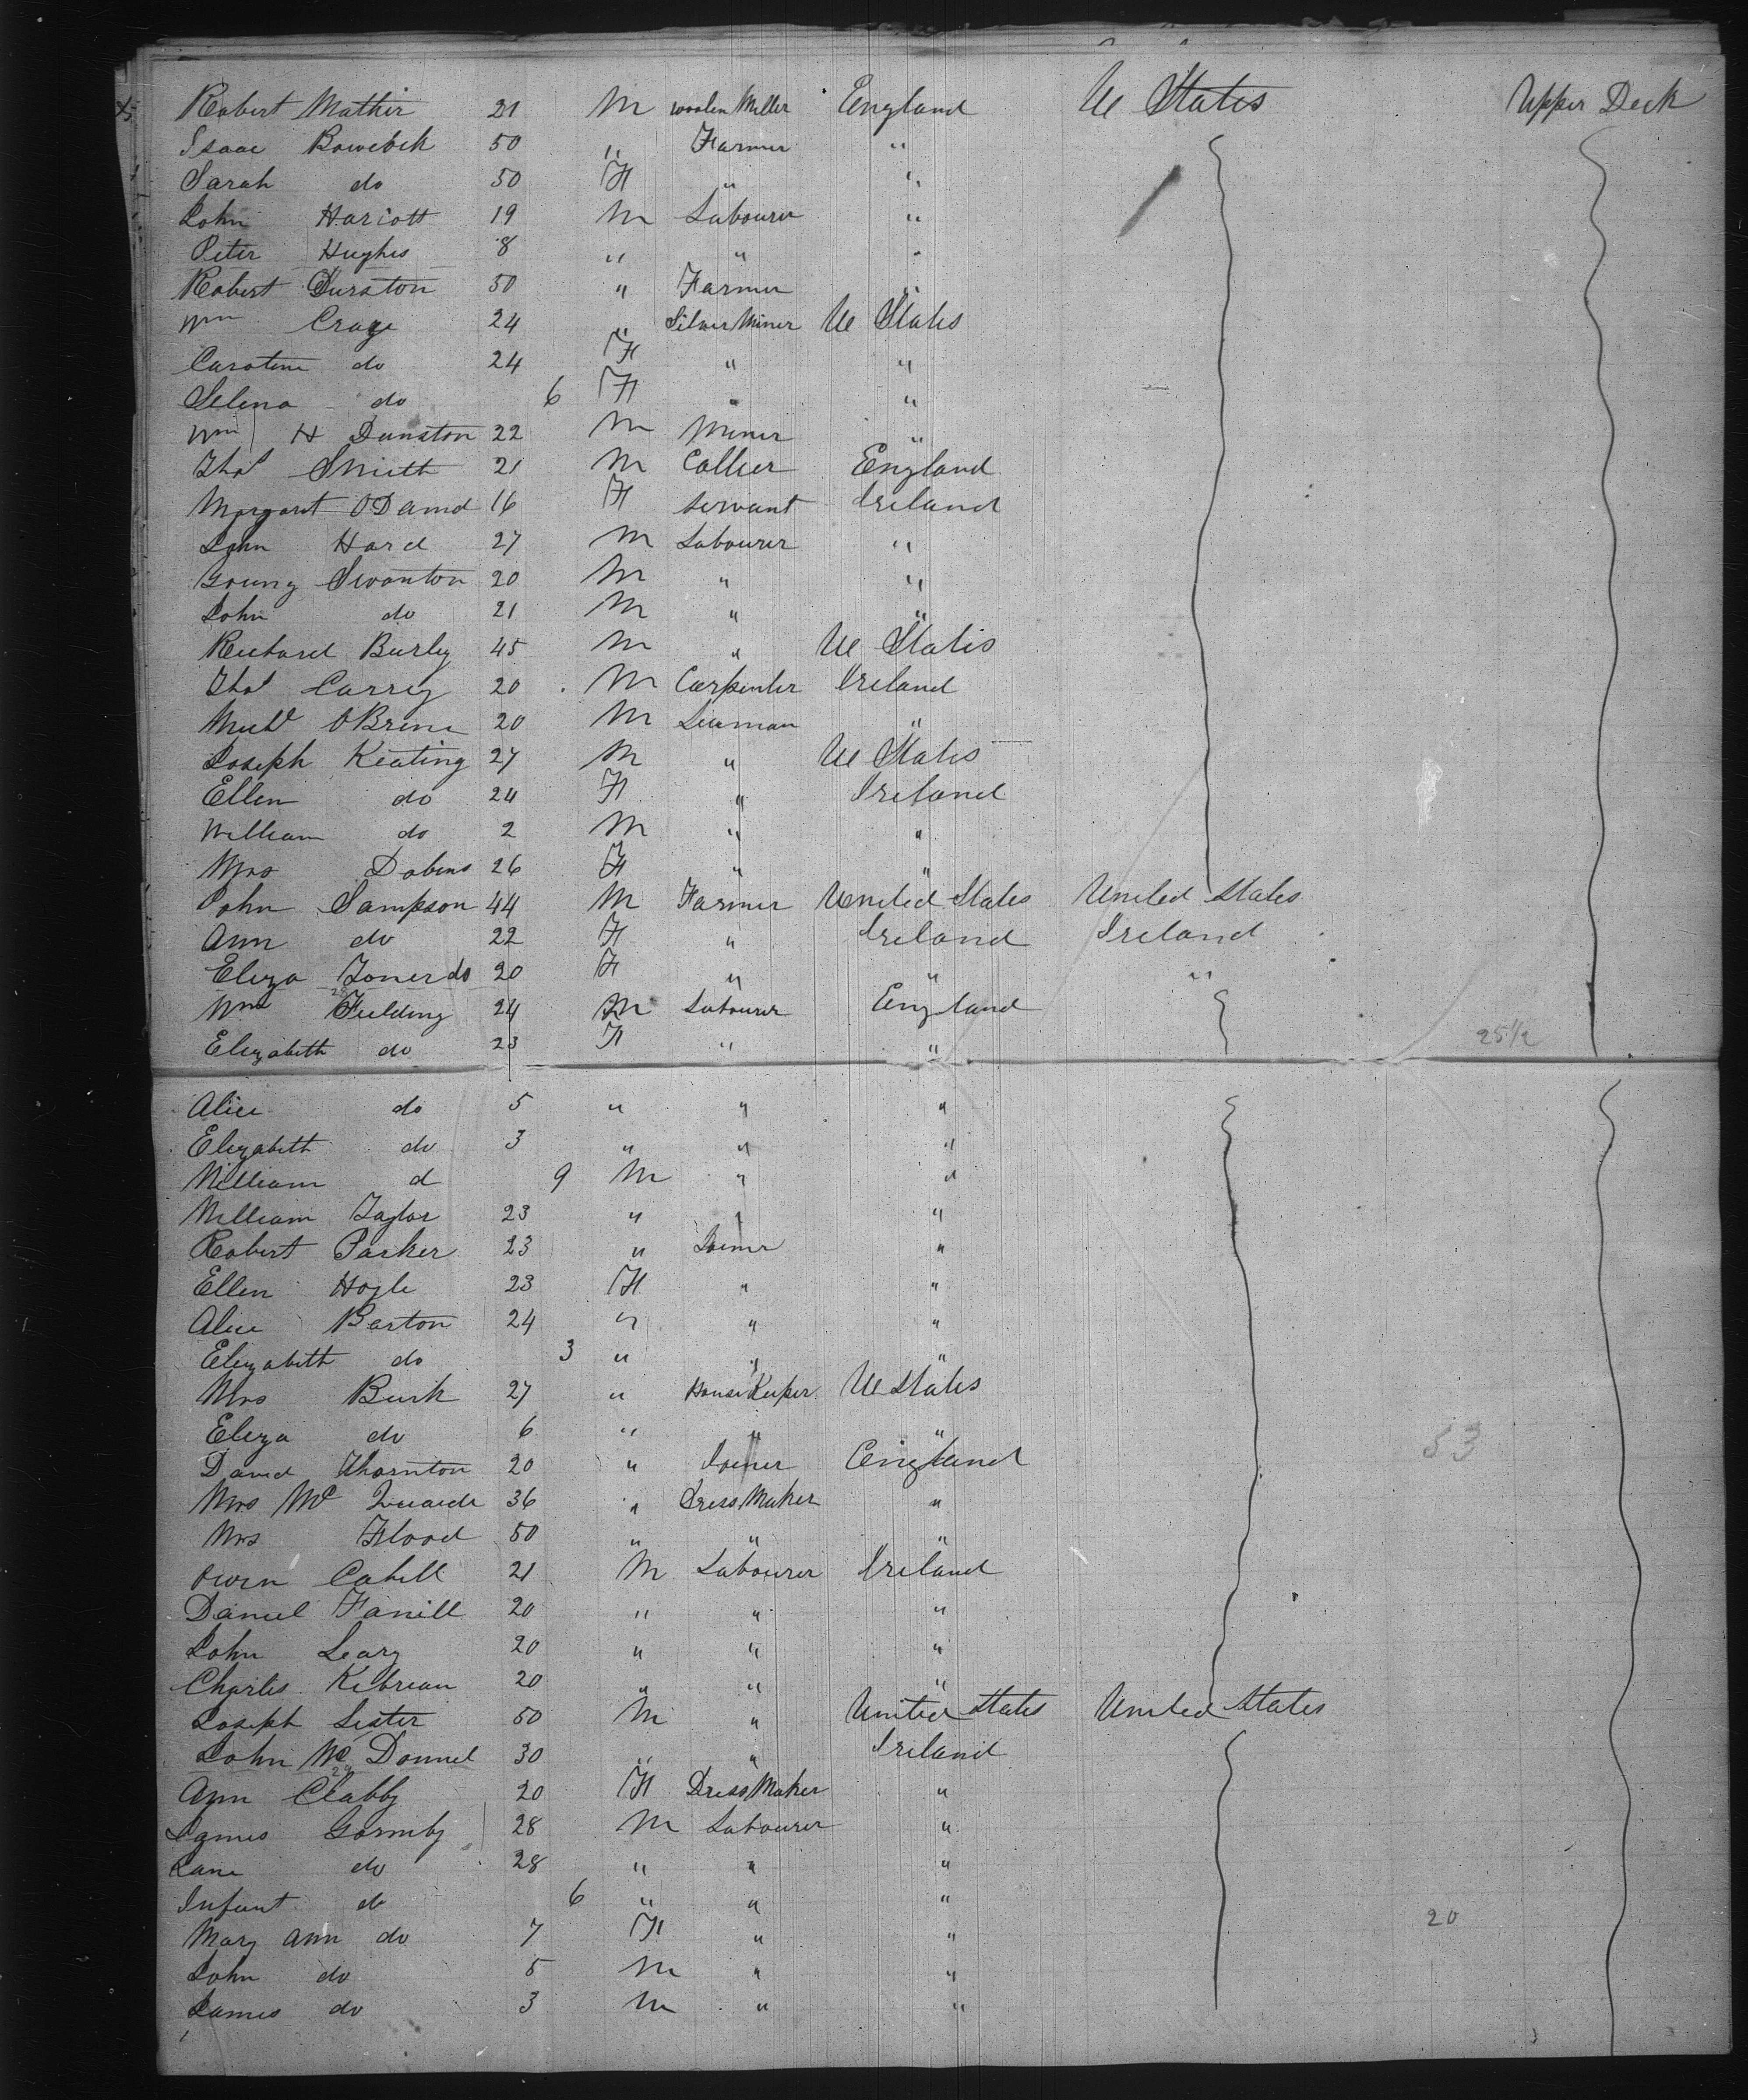 Robert Mather 21 M woolen Miller England Ue States Upper Deck
Isaac Bowebek 50 " Farmer "
Sarah do 50 F " "
John Hariott 19 M Labourer "
Peter Hughes 8 " " "
Robert Durston 50 " Farmer "
Wm Craze 24 " Silver Miner Ue States
Caroline do 24 F " "
Selena do 6 F " "
Wm H Dunston 22 M Miner "
Thos Smith 21 M Collier England
Margaret O 16 F servant Ireland
John Hard 27 M Labourer "
Young Swanton 20 M " "
John do 21 M " "
Richard Burley 45 M " Ue States
Thos Carrey 20 M Carpenter Ireland
Michl OBrine 20 M Seaman "
Joseph Keating 27 M " Ue States
Ellen do 24 F " Ireland
William do 2 M " "
Mrs Dobins 26 F " "
John Sampson 44 M Farmer United States United States
Ann do 22 F " Ireland Ireland
Eliza do 20 F " " "
Wm Fielding 24 M Labourer England
Elizabeth do 23 F " " 25 1/2
Alice do 5 " " "
Elizabeth do 3 " " "
William d 9 M " "
William Taylor 23 " " "
Robert Parker 23 " Joiner "
Ellen Hogle 23 F " "
Alice Barton 24 " " "
Elizabeth do 3 " " "
Mrs Burk 27 " House Keeper Ue States
Eliza do 6 " " " 53
David Thornton 20 " Joiner England
Mrs Mc 36 " Dress Maker "
Mrs Flood 50 " " "
Owen Cahill 21 M Labourer Ireland
Daniel Farrill 20 " " "
John Leary 20 " " "
Charles Kebrean 20 " " "
Joseph Lester 50 M " United States United States
John Mc Donnel 30 " " Ireland
Ann Clabby 20 F Dress Maker "
James Gormby 28 M Labourer "
Jane do 28 " " "
Infant do 6 " " "
Mary Ann do 7 F " " 20
John do 5 M " "
James do 3 M " "